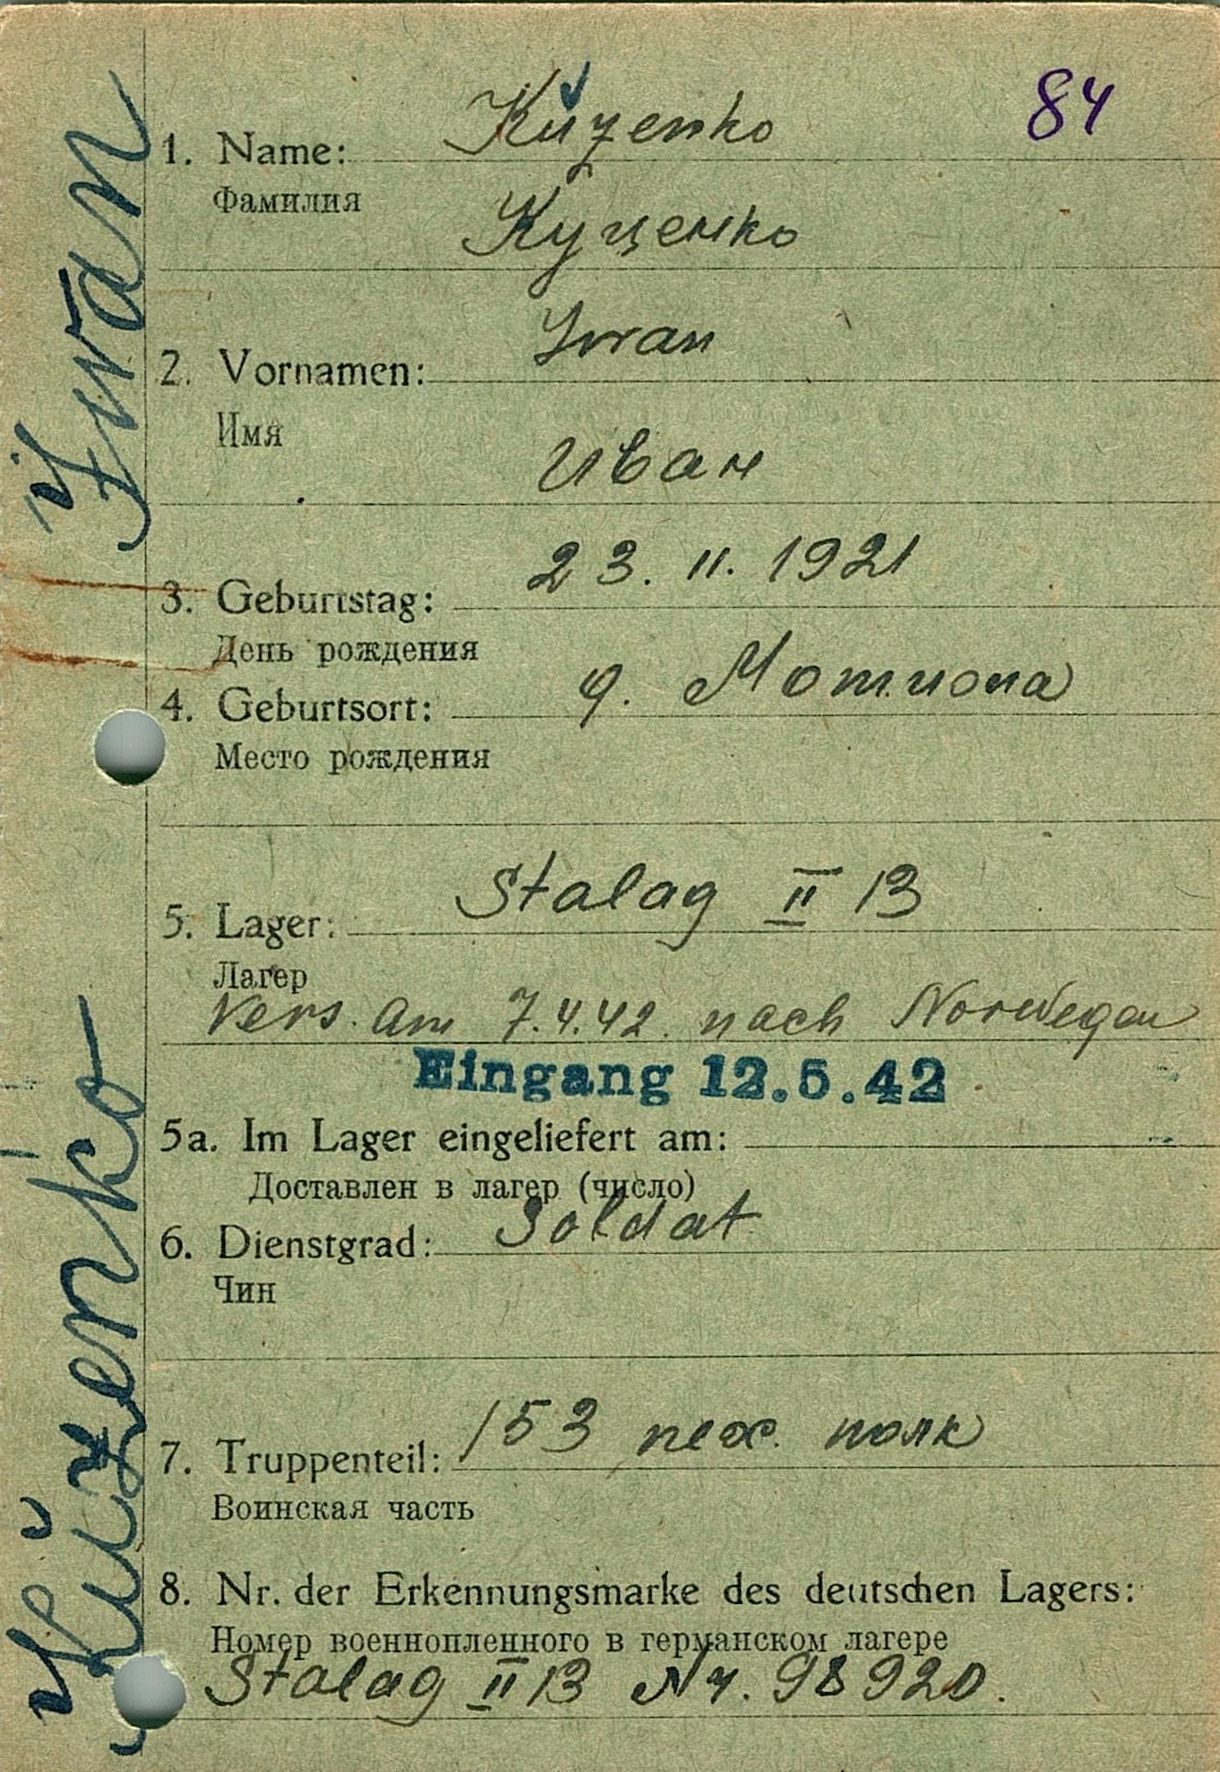 84
1. Name: Kuzenko
Фамилия Куценко
2. Vornamen: Iwan
Имя Иван
3. Geburtstag: 23. 11. 1921
День рождения
4. Geburtsort:
Место рождения
5. Lager: Stalag II B
Лагер
Vers. am 7.4.42. nach Norwegen
Eingang 12.5.42
5a. Im Lager eingeliefert am:
Доставлен в лагер (число)
6. Dienstgrad: Soldat
Чин
7. Truppenteil: 153 пех. полк
Воинская часть
8. Nr. der Erkennungsmarke des deutschen Lagers:
Номер военнопленного в германском лагере
Stalag II B Nr. 98920.
Kuzenko Iwan